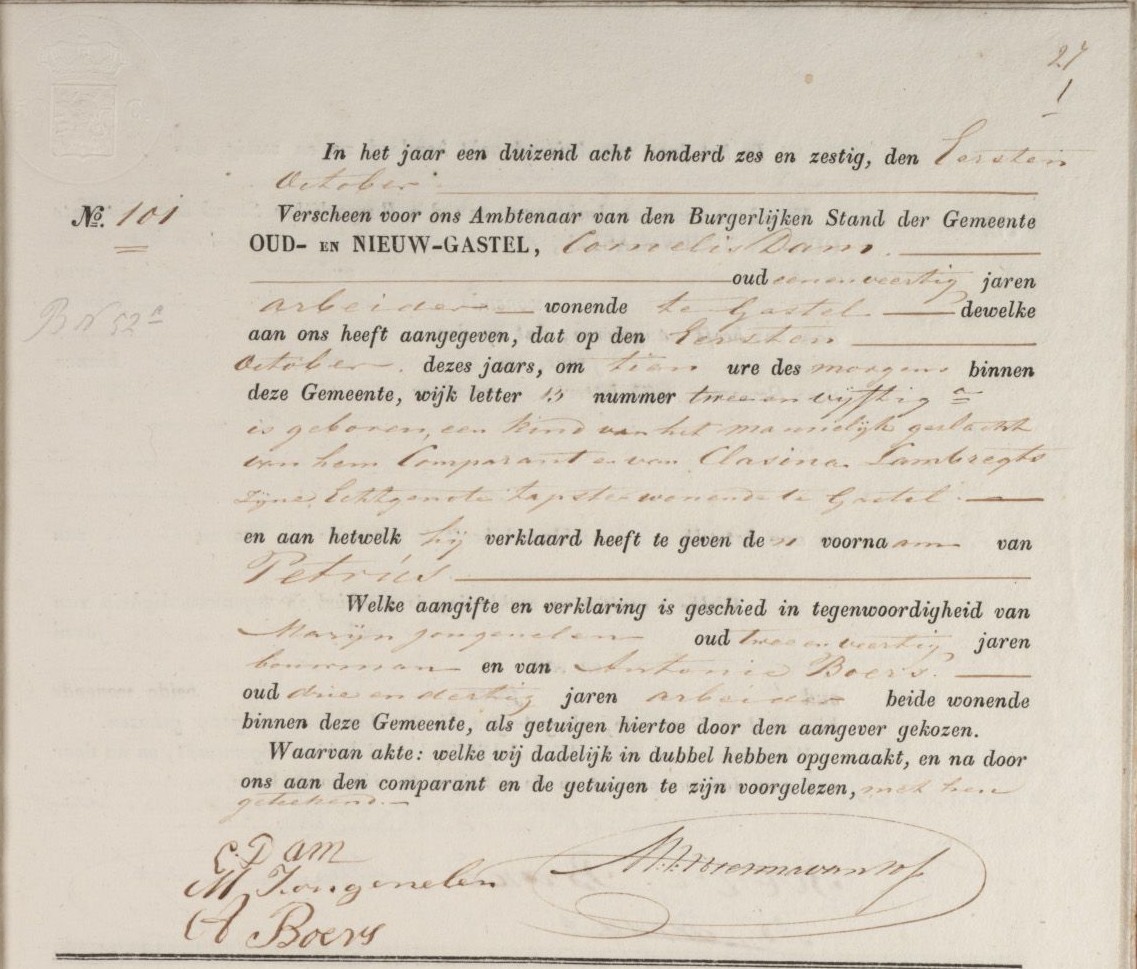 27
1
In het jaar een duizend acht honderd zes en zestig, den Eersten
October
No. 101
Verscheen voor ons Ambtenaar van den Burgerlijken Stand der Gemeente
OUD- EN NIEUW-GASTEL, Cornelis Dam
oud eenenveertig jaren
arbeider wonende te Gastel dewelke
aan ons heeft aangegeven, dat op den Eersten
B No 52a
October dezes jaars, om tien ure des morgens binnen
deze Gemeente, wijk letter B nummer twee en vijftig a
is geboren, een kind van het mannelijk geslacht
van hem Comparant en van Clasina Lambregts
zijne Echtgenote tapster wonende te Gastel
en aan hetwelk hij verklaard heeft te geven den voornaam van
Petrus
Welke aangifte en verklaring is geschied in tegenwoordigheid van
Marijn Jongenelen oud twee en veertig jaren
bouwman en van Antonie Boers
oud drie en dertig jaren arbeider beide wonende
binnen deze Gemeente, als getuigen hiertoe door den aangever gekozen.
Waarvan akte: welke wij dadelijk in dubbel hebben opgemaakt, en na door
ons aan den comparant en de getuigen te zijn voorgelezen, met hen
geteekend.
C. Dam
M Jongenelen
A Boers